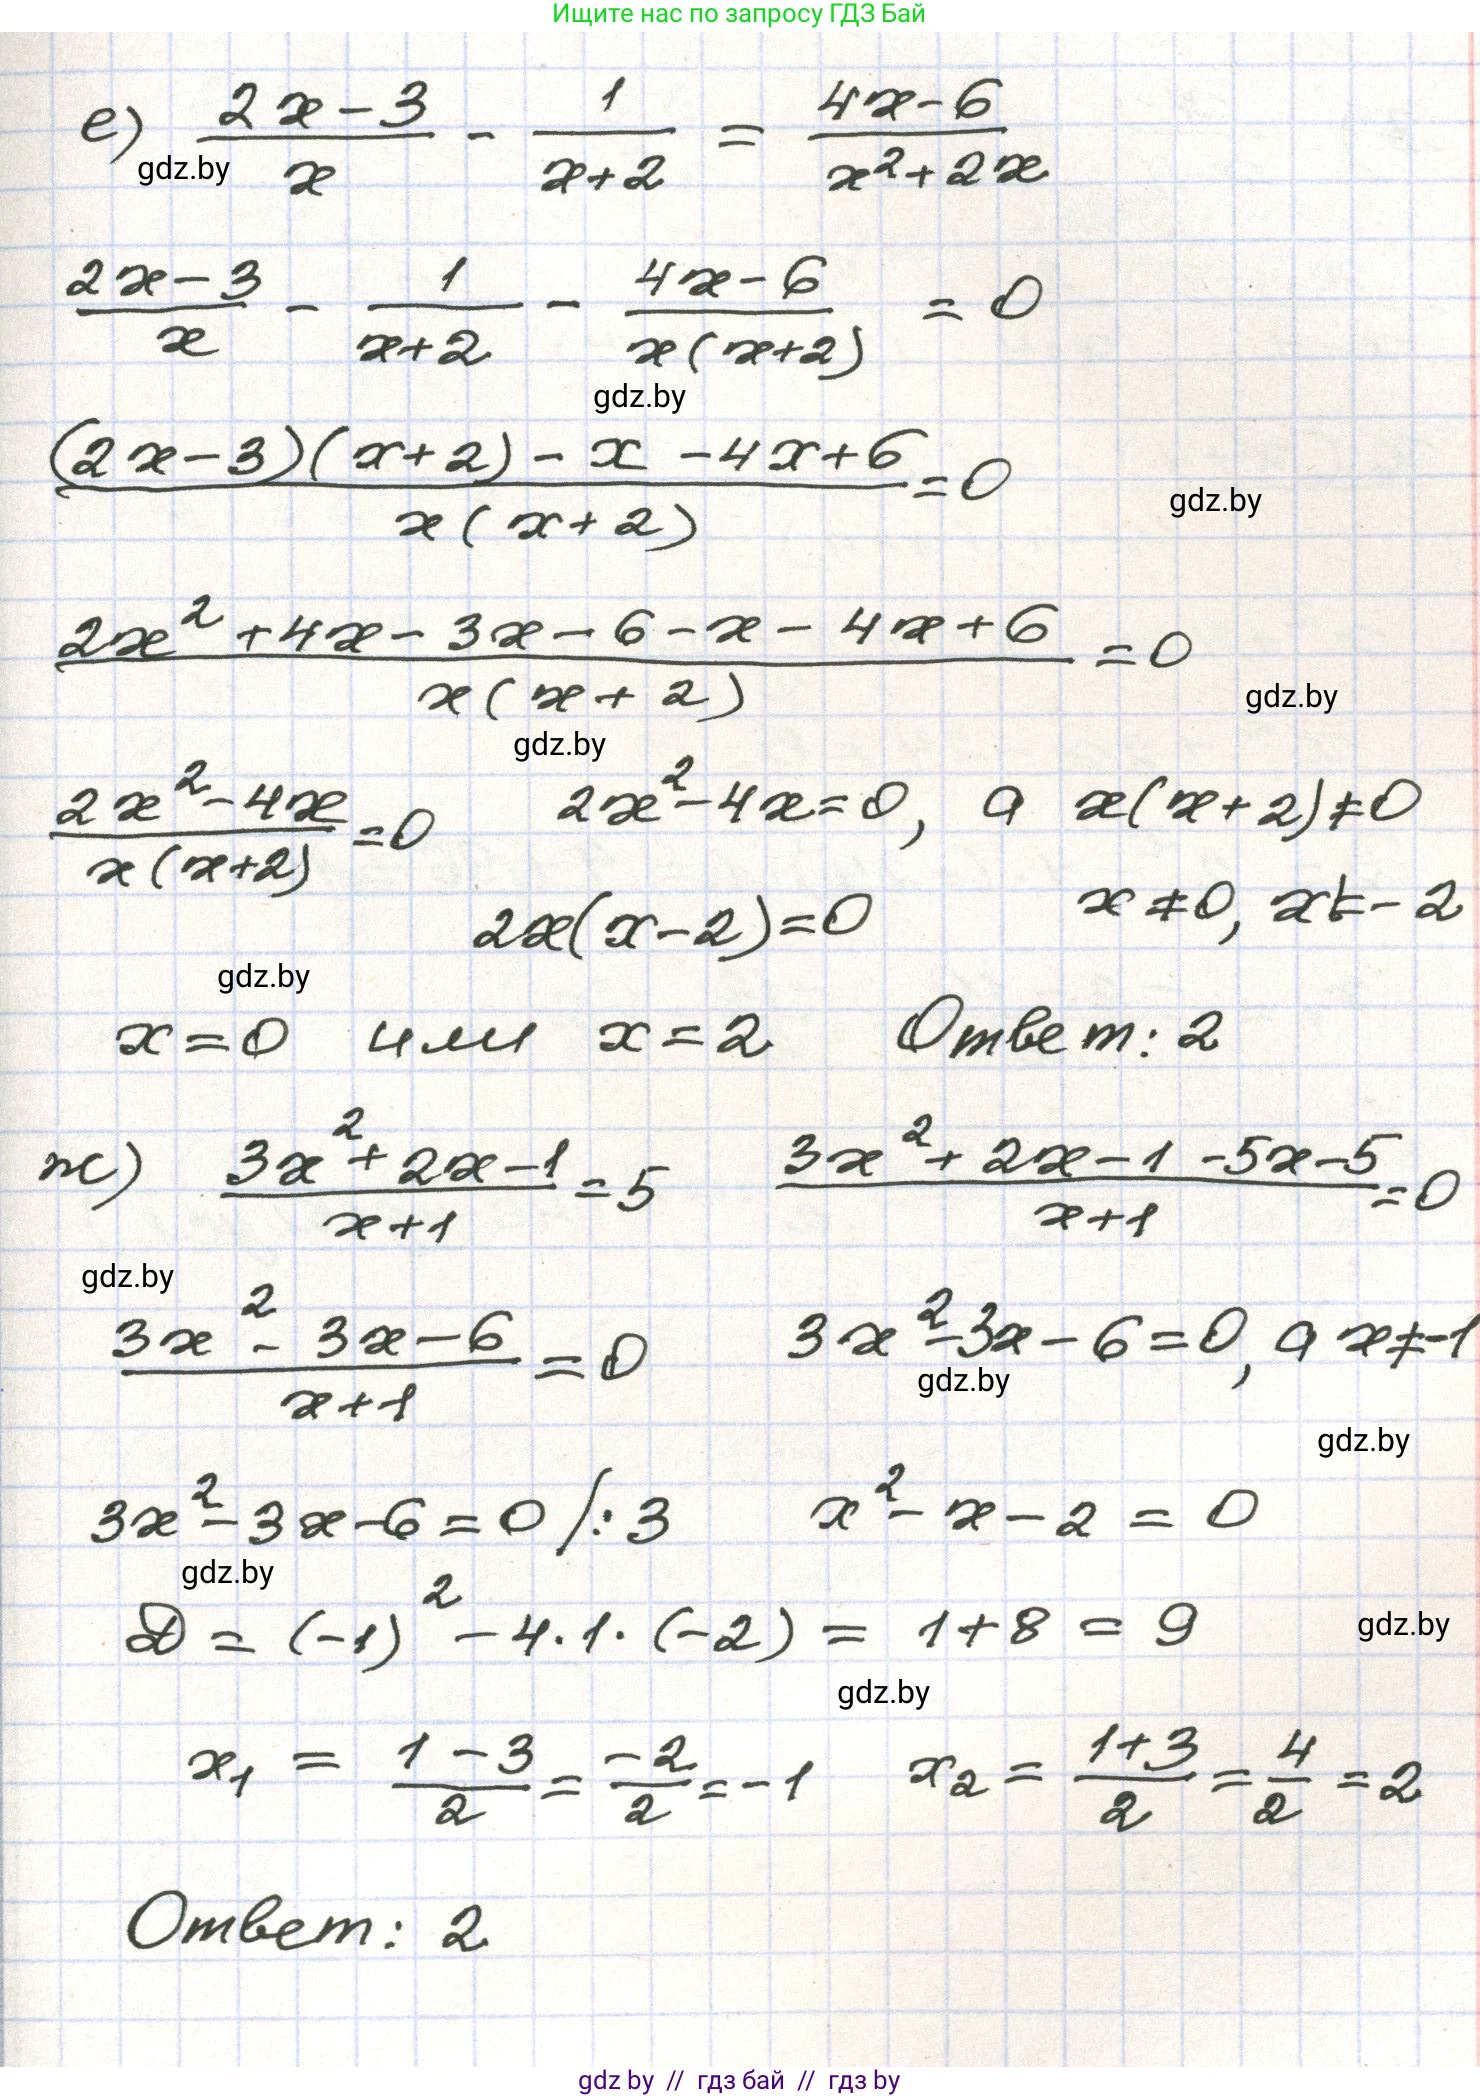 Ищите нас по запросу ГДЗ Бай
е) (2x-3)/x - 1/(x+2) = (4x-6)/(x²+2x)
gdz.by
(2x-3)/x - 1/(x+2) - (4x-6)/(x(x+2)) = 0
gdz.by
((2x-3)(x+2)-x-4x+6)/(x(x+2)) = 0
gdz.by
(2x²+4x-3x-6-x-4x+6)/(x(x+2)) = 0
gdz.by
gdz.by
(2x²-4x)/(x(x+2)) = 0 2x²-4x=0, а x(x+2)≠0
2x(x-2)=0 x≠0, x≠-2
gdz.by
x=0 или x=2 Ответ: 2
ж) (3x²+2x-1)/(x+1) = 5 (3x²+2x-1-5x-5)/(x+1) = 0
gdz.by
(3x²-3x-6)/(x+1) = 0 3x²-3x-6=0, а x≠-1
gdz.by
gdz.by
3x²-3x-6=0 /:3 x²-x-2=0
gdz.by
D = (-1)² - 4·1·(-2) = 1+8 = 9
gdz.by
gdz.by
x₁ = (1-3)/2 = -2/2 = -1 x₂ = (1+3)/2 = 4/2 = 2
Ответ: 2
gdz by // гдз бай // гдз by